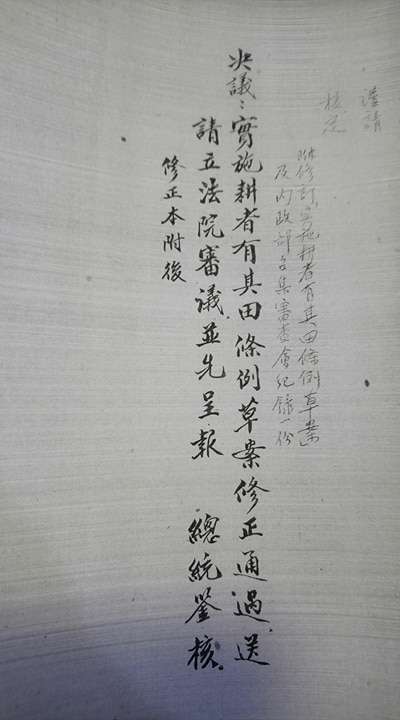 謹請
核定
附修訂實施耕者有其田條例草案
及內政部召集審查會紀錄一份
決議：實施耕者有其田條例草案修正通過送
請立法院審議並先呈報　總統鑒核。
修正本附後